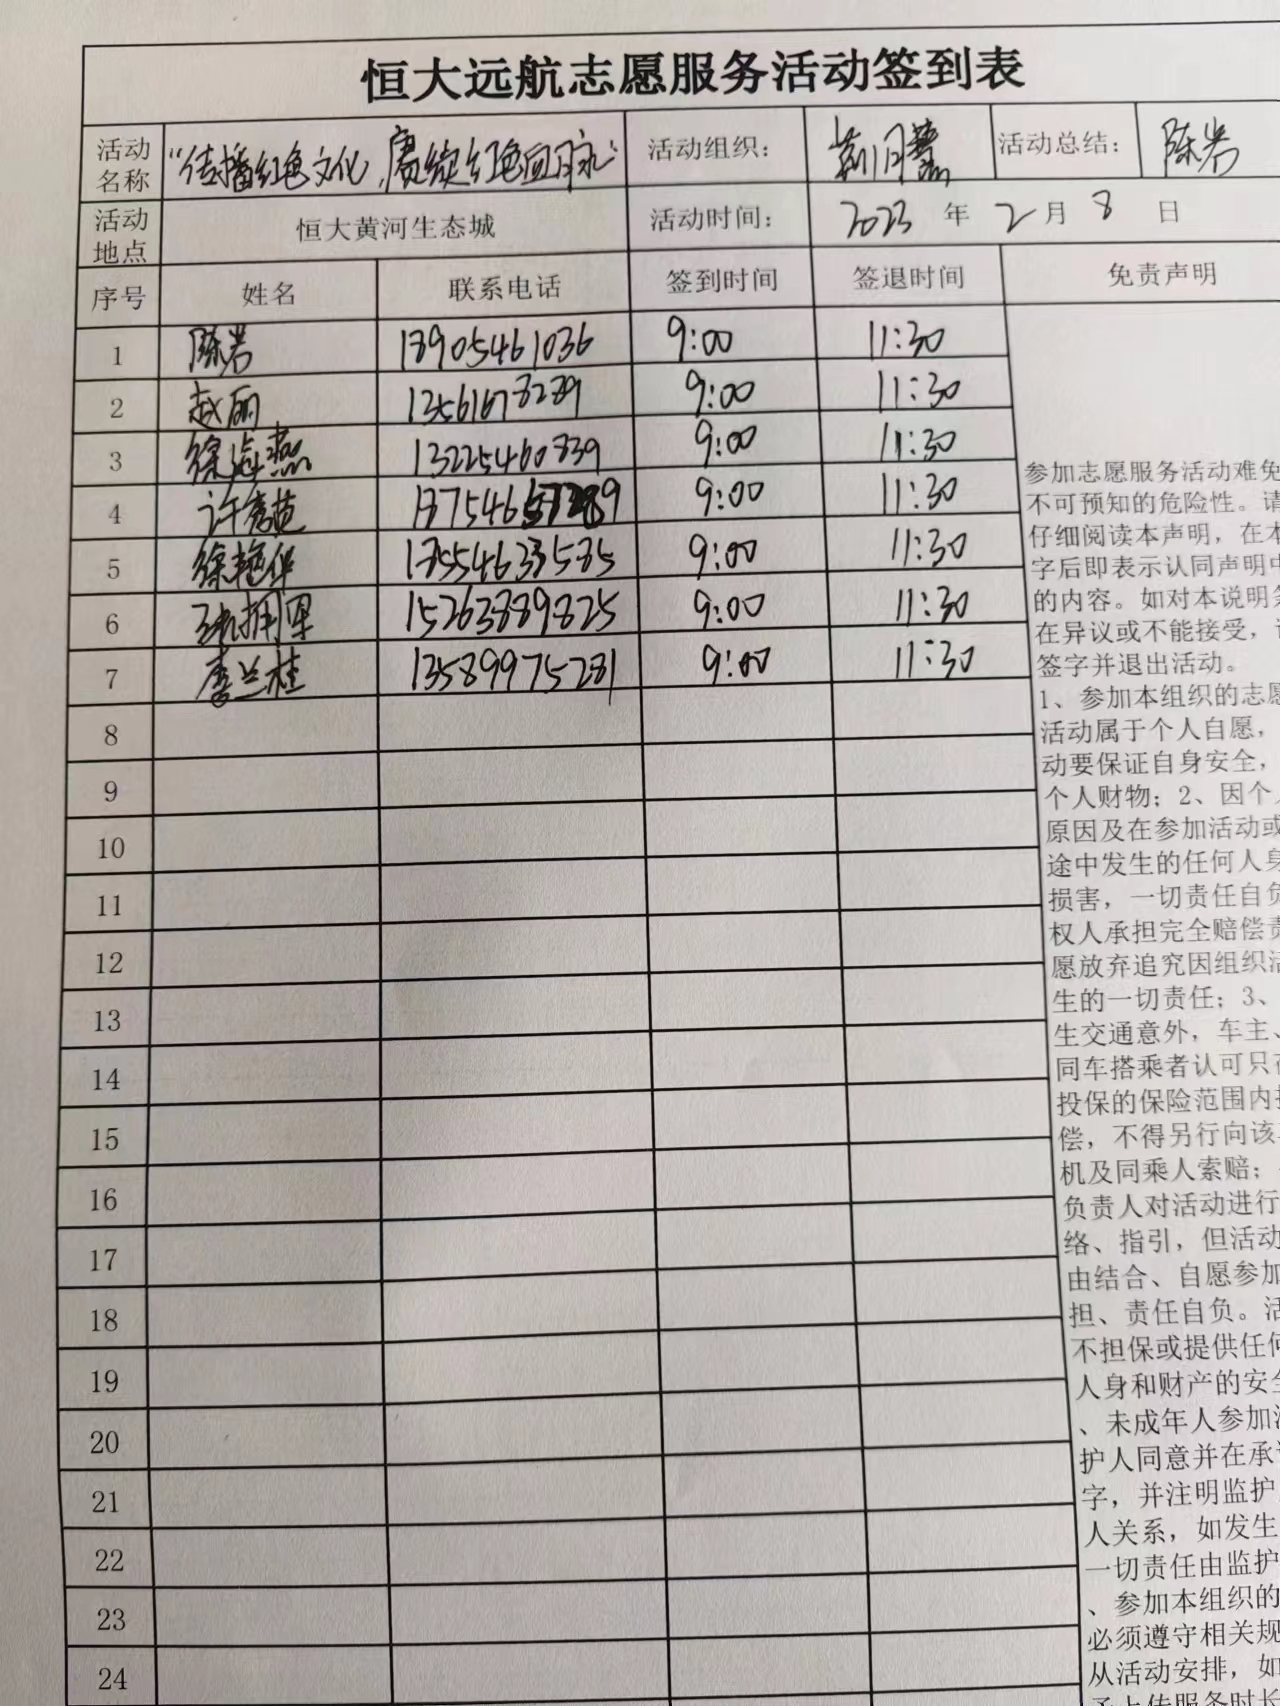 恒大远航志愿服务活动签到表
活动名称 "传播红色文化,赓续红色血脉" 活动组织: 荆月慧 活动总结: 陈岩
活动地点 恒大黄河生态城 活动时间: 2023 年 2 月 8 日
序号 姓名 联系电话 签到时间 签退时间 免责声明
1 陈岩 18905461036 9:00 11:30
2 赵丽 13561678289 9:00 11:30
3 徐海燕 13225460839 9:00 11:30
4 9:00 11:30
5 徐艳华 9:00 11:30
6 15263889825 9:00 11:30
7 李兰桂 13589975281 9:00 11:30
8
9
10
11
12
13
14
15
16
17
18
19
20
21
22
23
24
参加志愿服务活动难免
不可预知的危险性。请
仔细阅读本声明，在本
字后即表示认同声明中
的内容。如对本说明条
在异议或不能接受，
签字并退出活动。
1、参加本组织的志愿
活动属于个人自愿，
动要保证自身安全，
个人财物；2、因个人
原因及在参加活动或
途中发生的任何人身
损害，一切责任自负
权人承担完全赔偿责
愿放弃追究因组织活
生的一切责任；3、
生交通意外，车主、
同车搭乘者认可只在
投保的保险范围内
偿，不得另行向该
机及同乘人索赔；
负责人对活动进行
络、指引，但活动
由结合、自愿参加
担、责任自负。活
不担保或提供任何
人身和财产的安全
、未成年人参加活
护人同意并在承诺
字，并注明监护
人关系，如发生
一切责任由监护
、参加本组织的
必须遵守相关规
从活动安排，如
上传服务时长